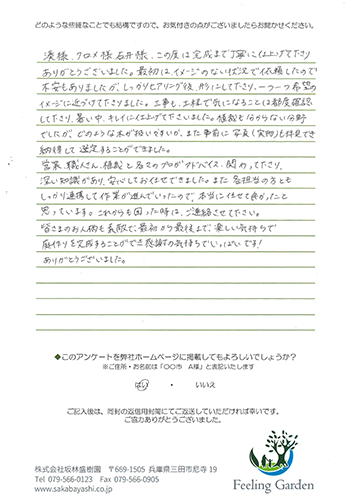 どのような些細なことでも結構ですので、お気付きの点がございましたらお聞かせください。
湊様、クロメ様、石井様、この度は完成まで丁寧に仕上げて下さり
ありがとうございました。最初は、イメージのない状況で依頼したので
不安もありましたが、しっかりヒアリング後、形にして下さり、一つ一つ希望の
イメージに近づけて下さりました。工事も、工程で気になることは都度確認
して下さり、暑い中、キレイに仕上げて下さいました。植栽も分からない分野
でしたが、どのような木が扱いやすいか、また事前に写真(実物)も拝見でき
納得して選定することができました。
営業、職人さん、植栽と各々のプロがアドバイス、関わって下さり、
深い知識があり、安心してお任せできました。また各担当の方とも
しっかり連携して作業が進んでいったので、本当に任せて良かったこと
思っています。これからも困った時は、ご連絡させて下さい。
皆さまのお人柄も素敵で、最初から最後まで、楽しい気持ちで
庭作りを完成することができ感謝の気持ちでいっぱいです!
ありがとうございました。
◆このアンケートを弊社ホームページに掲載してもよろしいでしょうか?
※ご住所・お名前は「〇〇市 A様」と表記いたします
はい ・ いいえ
ご記入後は、同封の返信用封筒にてご返送していただければ幸いです。
ご協力ありがとうございました。
株式会社坂林盛樹園 〒669-1505 兵庫県三田市尼寺 19
Tel 079-566-0123 Fax 079-566-0905
www.sakabayashi.co.jp
Feeling Garden